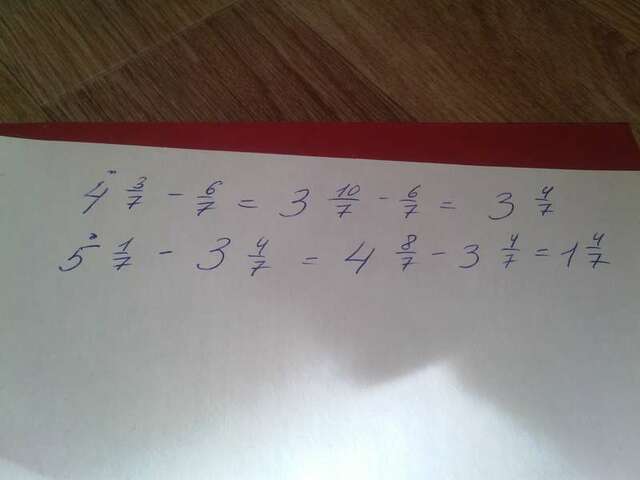 4 3/7 - 6/7 = 3 10/7 - 6/7 = 3 4/7
5 1/7 - 3 4/7 = 4 8/7 - 3 4/7 = 1 4/7